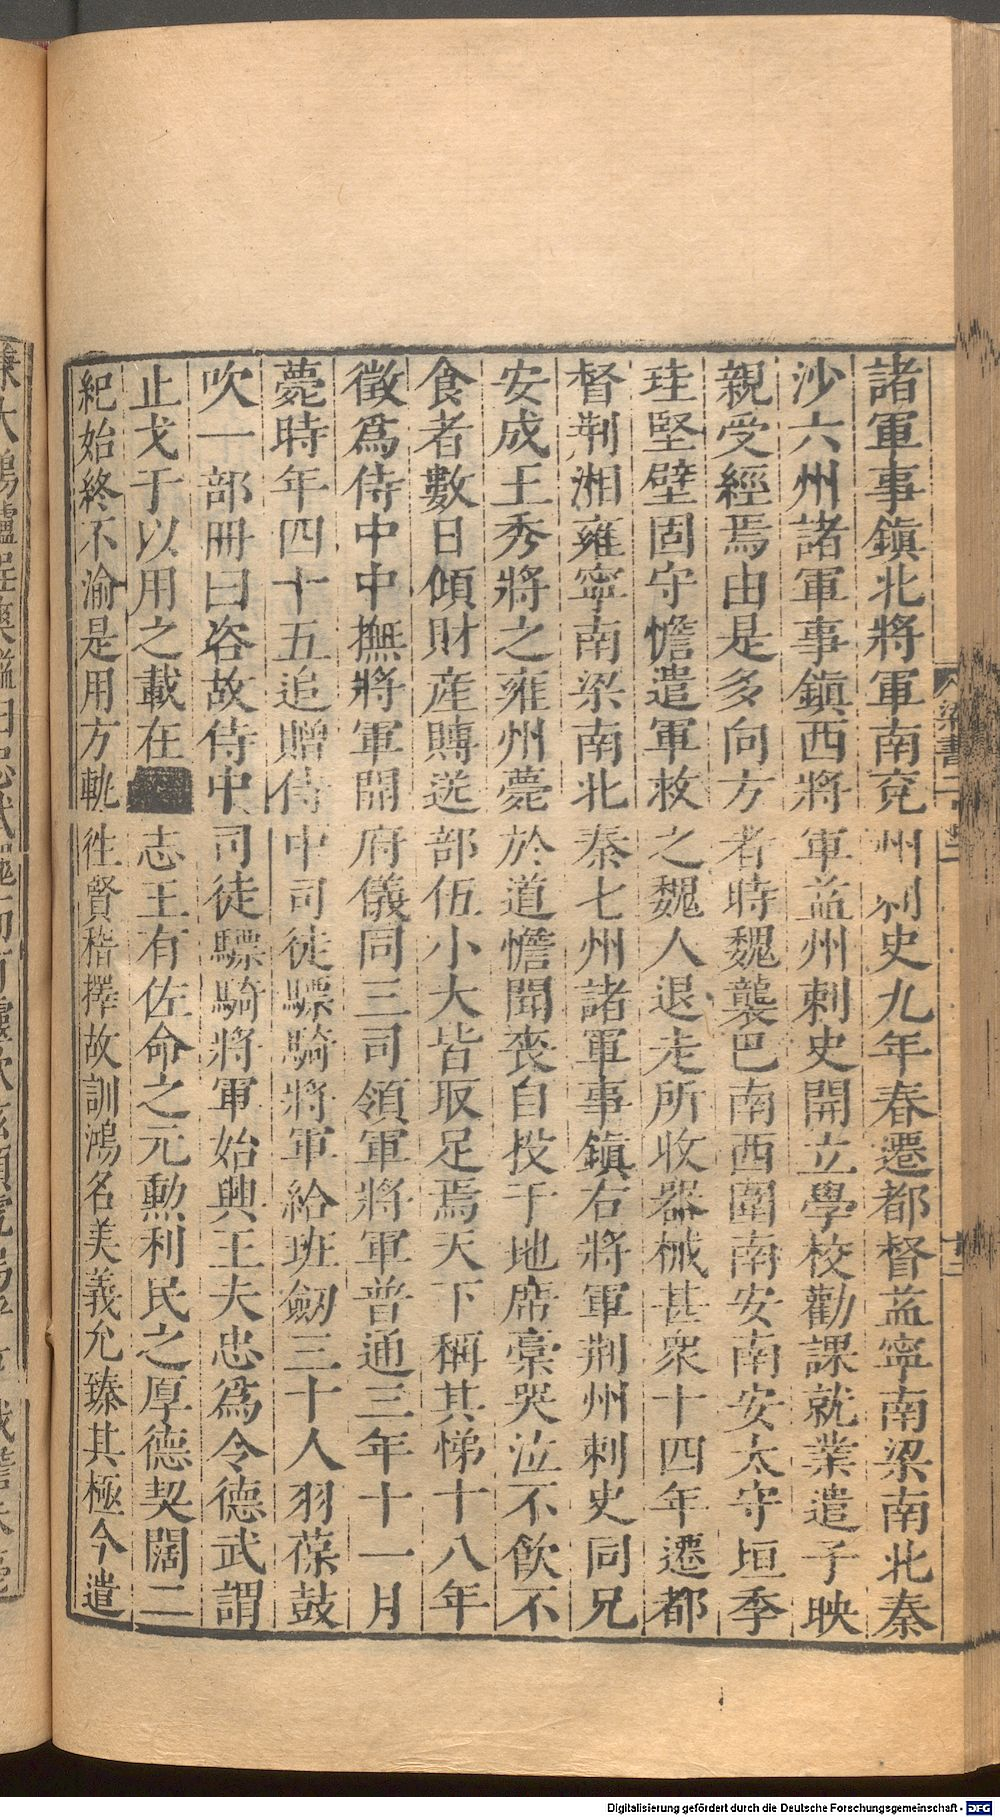 諸軍事鎮北將軍南兗州刺史九年春遷都督益寧南梁南北秦
沙六州諸軍事鎮西將軍益州刺史開立學校勸課就業遣子映
親受經焉由是多向方者時魏襲巴南西圍南安南安太守垣季
珪堅壁固守憺遣軍救之魏人退走所收器械甚衆十四年遷都
督荆湘雍寧南梁南北秦七州諸軍事鎮右將軍荆州刺史同兄
安成王秀將之雍州薨於道憺聞喪自投于地席藁哭泣不飲不
食者數日傾財産賻送部伍小大皆取足焉天下稱其悌十八年
徵爲侍中中撫將軍開府儀同三司領軍將軍普通三年十一月
薨時年四十五追贈侍中司徒驃騎將軍給班劒三十人羽葆鼓
吹一部冊曰咨故侍中司徒驃騎將軍始興王夫忠爲令德武謂
止戈于以用之載在志王有佐命之元勳利民之厚德契闊二
紀始終不渝是用方軌徃賢稽擇故訓鴻名美義允臻其極今遣
梁書二
Digitalisierung gefördert durch die Deutsche Forschungsgemeinschaft - DFG